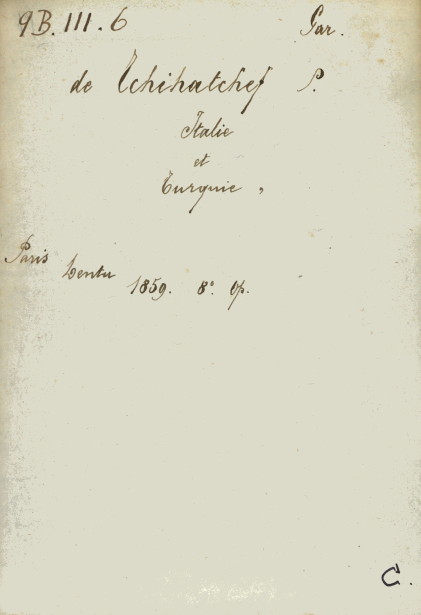 9B.III.6 Gar.
de Tchihatchef P.
Italie
et
Turquie „
Paris Dentu 1859. 8° Op.
C.